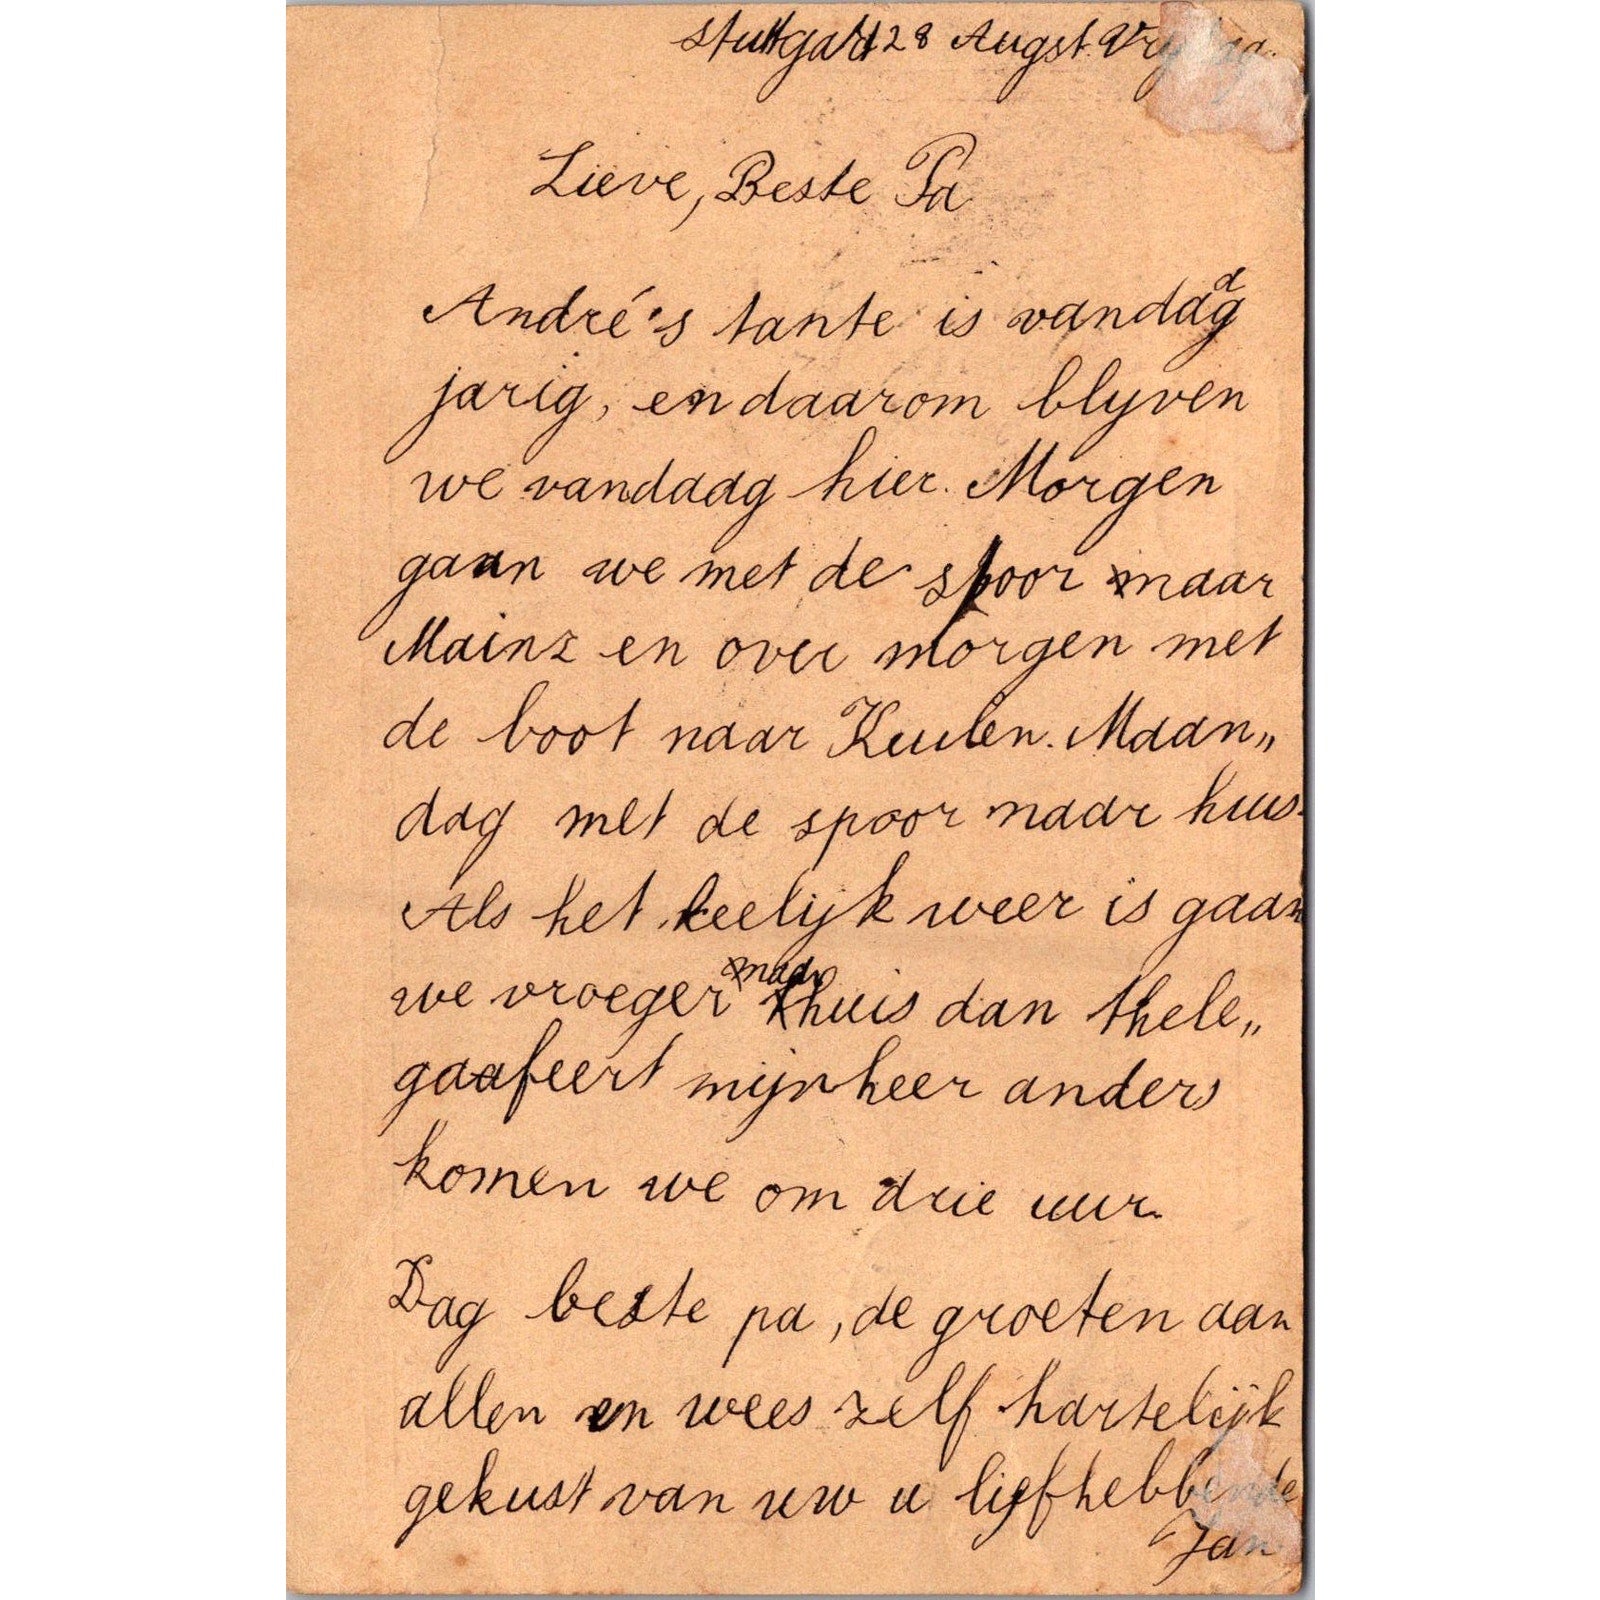 Stuttgart 28 Augst. Vrijdag.
Lieve, Beste Pa
André's tante is vandaag
jarig, en daarom blyven
we vandaag hier. Morgen
gaan we met de spoor naar
Mainz en over morgen met
de boot naar Keulen. Maan„
dag met de spoor naar huis.
Als het leelijk weer is gaan
we vroeger naar huis dan thele„
gaafeert mijnheer anders
komen we om drie uur.
Dag beste pa, de groeten aan
allen en wees zelf hartelijk
gekust van uw u liefhebbende
Jan